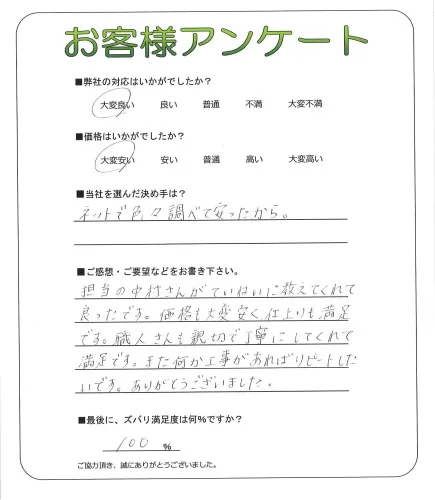 お客様アンケート
■弊社の対応はいかがでしたか？
大変良い 良い 普通 不満 大変不満
■価格はいかがでしたか？
大変安い 安い 普通 高い 大変高い
■当社を選んだ決め手は？
ネットで色々調べて安ったから。
■ご感想・ご要望などをお書き下さい。
担当の中村さんがていねいに教えてくれて
良ったです。価格も大変安く仕上りも満足
です。職人さんも親切で丁寧にしてくれて
満足です。また何か工事があればリピートした
いです。ありがとうございました。
■最後に、ズバリ満足度は何%ですか？
100 %
ご協力頂き、誠にありがとうございました。